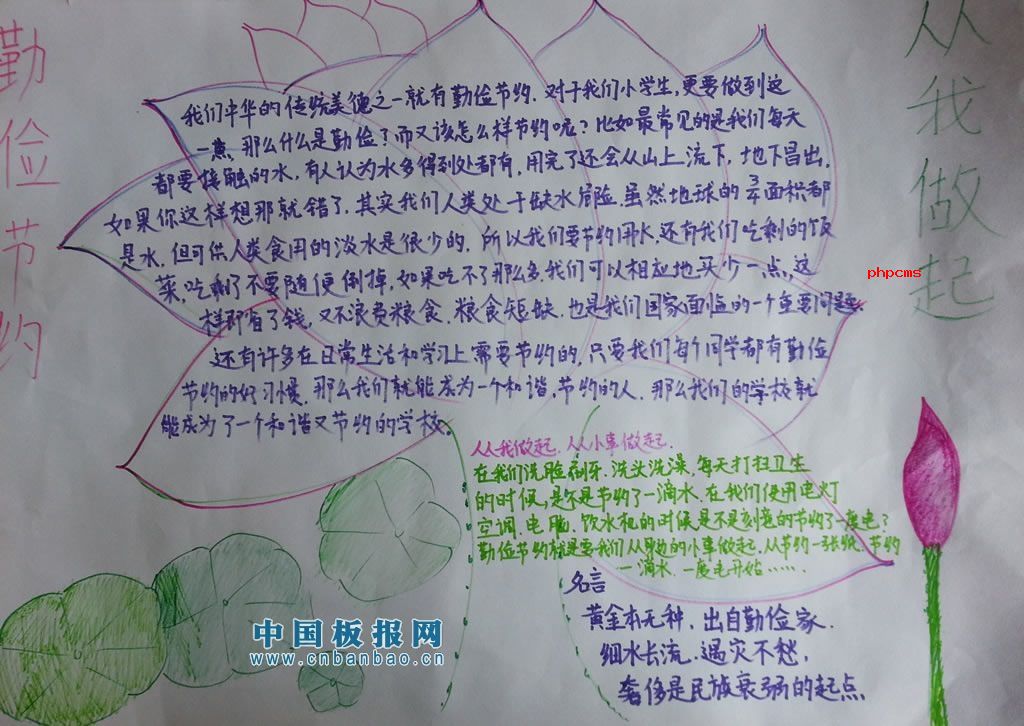 勤俭节约
从我做起
我们中华的传统美德之一就有勤俭节约.对于我们小学生,更要做到这
一点,那么什么是勤俭?而又该怎么样节约呢?比如最常见的是我们每天
都要接触的水,有人认为水多得到处都有,用完了还会从山上流下,地下冒出,
如果你这样想那就错了,其实我们人类处于缺水危险.虽然地球的3/4面积都
是水,但可供人类食用的淡水是很少的,所以我们要节约用水,还有我们吃剩的饭
菜,吃剩了不要随便倒掉,如果吃不了那么多,我们可以相应地买少一点,这
样即省了钱,又不浪费粮食.粮食短缺.也是我们国家面临的一个重要问题.
还有许多在日常生活和学习上需要节约的,只要我们每个同学都有勤俭
节约的好习惯,那么我们就能成为一个和谐,节约的人.那么我们的学校就
能成为了一个和谐又节约的学校。
phpcms
从我做起.从小事做起.
在我们洗脸刷牙.洗头洗澡.每天打扫卫生
的时候,是不是节约了一滴水.在我们使用电灯
空调.电脑.饮水机的时候是不是刻意的节约了一度电?
勤俭节约就是要我们从身边的小事做起.从节约一张纸.节约
一滴水.一度电开始……
名言
黄金本无种,出自勤俭家.
细水长流.遇灾不愁,
奢侈是民族衰弱的起点.
中国板报网
www.cnbanbao.cn